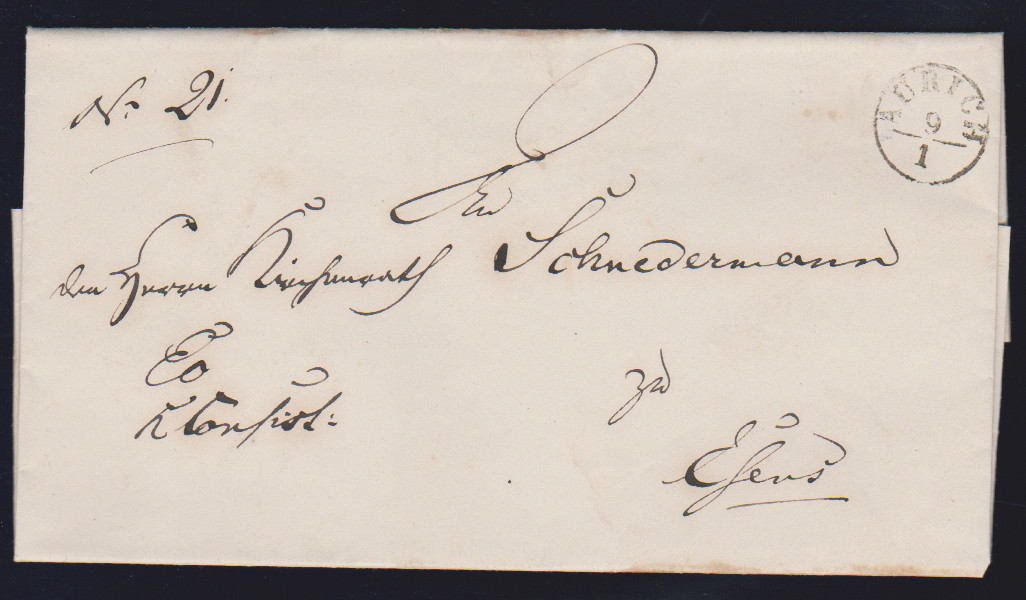 No 21.
AURICH
9
1
An
den Herrn Kirchenrath Schnedermann
Co
K Consist:
zu
Esens